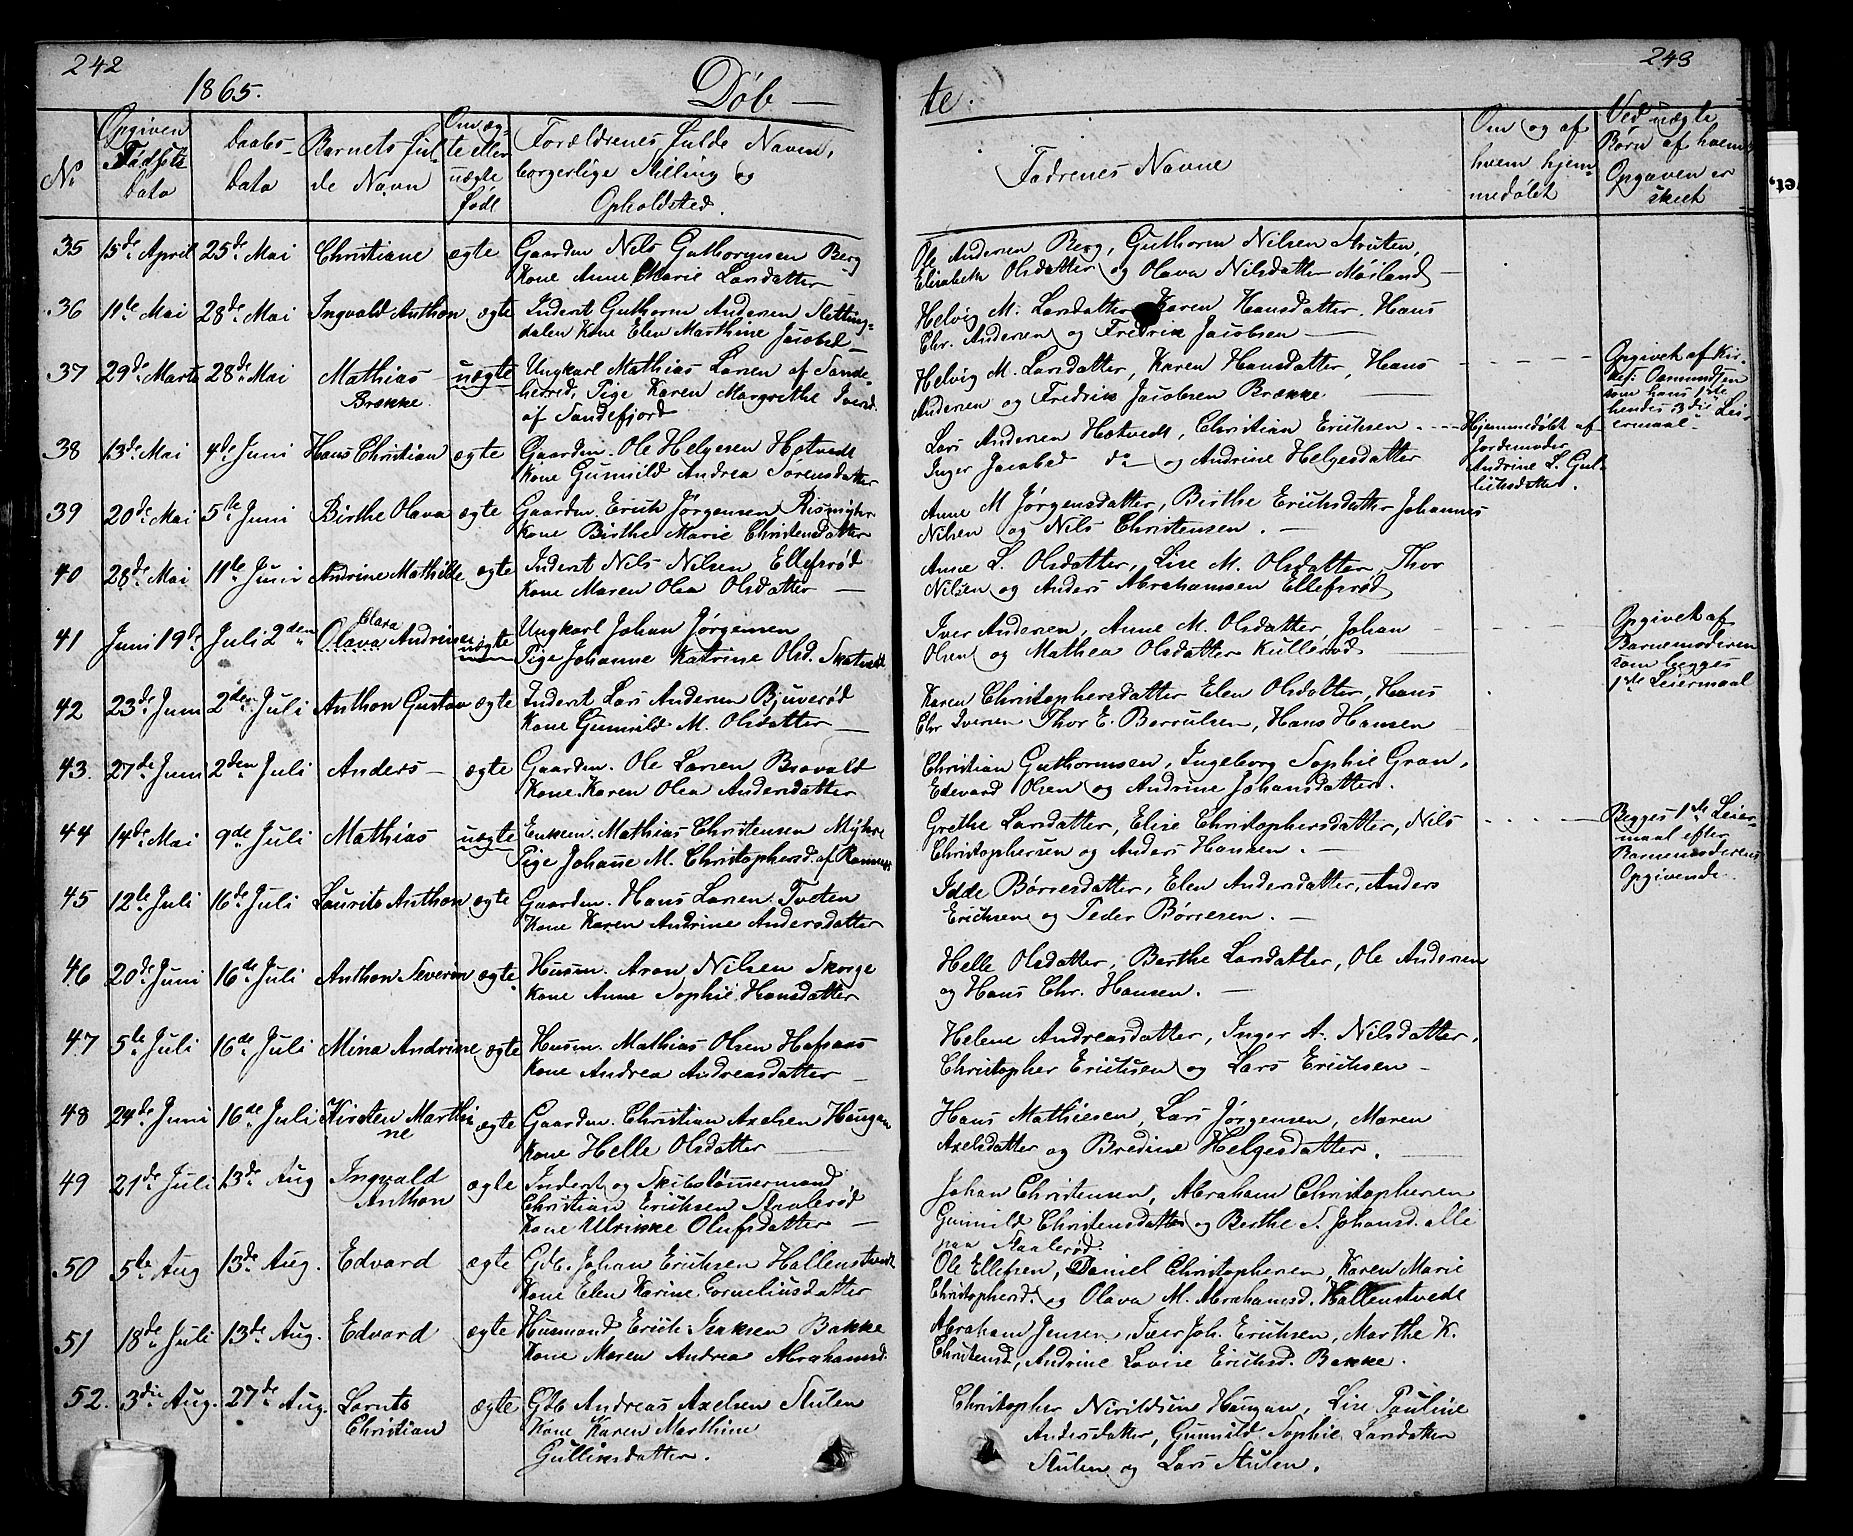 242
1865.
Døb —
No
Opgiven
Fødsels
Dato
Daabs-
Dato
Barnets ful-
de Navn
Om æg-
te eller
uægte
født
Forældrenes fulde Navne,
borgerlige Stilling og
Opholdsted.
35 15de April 25de Mai Christiane ægte Gaardm. Nils Guthormsen Berg
Kone Anne Marie Larsdatter
36 11te Mai 28de Mai Ingvald Anthon ægte Inderst Guthorm Andersen
dalen Kone Elen Marthine Jacobsd
37 29de Marts 28de Mai Mathias uægte Ungkarl Mathias Larsen af Sande-
Brække herred, Pige Karen Margrethe Iversd.
af Sandefjord
38 13de Mai 4de Juni Hans Christian ægte Gaardm. Ole Helgesen Hotvedt
Kone Gunnild Andrea Sørensdatter
39 20de Mai 5te Juni Birthe Olava ægte Gaardm. Erich Jørgensen Rismyhr
Kone Birthe Marie Christensdatter
40 28de Mai 11te Juni Andrine Mathilde ægte Inderst Nils Nilsen Ellefsrød
Kone Maren Olea Olsdatter —
Clara
41 Juni 19de Juli 2den Olava Andrine uægte Ungkarl Johan Jørgensen
Pige Johanne Katrine Olsd. Skatvedt
42 23de Juni 2den Juli Anthon Gustav ægte Inderst Lars Andersen Bjuverød
Kone Gunnild M. Olsdatter —
43. 27de Juni 2den Juli Anders — ægte Gaardm. Ole Larsen Bravald
Kone Karen Olea Andersdatter
44 14de Mai 9de Juli Mathias uægte Enkem. Mathias Christensen Myhre
Pige Johanne M. Christophersd. af Ramnes
45 12te Juli 16de Juli Laurits Anthon ægte Gaardm. Hans Larsen Tveten
Kone Karen Andrine Andersdatter
46 20de Juni 16de Juli Anthon Severin ægte Husm. Aron Nilsen Skorge
Kone Anne Sophie Hansdatter
47 5te Juli 16de Juli Mina Andrine ægte Husm. Mathias Olsen Hafsaas
Kone Andrea Andreasdatter —
48 24de Juni 16de Juli Kirsten Marthi- ægte Gaardm. Christian Axelsen Haugan
ne Kone Helle Olsdatter —
49 21de Juli 13de Aug Ingvald ægte Inderst og Skibstømmermand
Anthon Christian Erichsen Staalerød
Kone Ulrikke Olufsdatter —
50 5te Aug 13de Aug. Edvard ægte Gdb. Johan Erichsen Hallenstvedt
Kone Elen Karine Corneliusdatter
51 18de Juli 13de Aug. Edvard ægte Husmand Erich Isaksen Bakke
Kone Maren Andrea Abrahamsd.
52. 3die Aug. 27de Aug. Laruts ægte Gdb Andreas Axelsen Stulen
Christian Kone Karen Marthine
Gulliksdatter.
243
te.
Fadrenes Navne
Om og af
hvem hjem-
medøbt
Ved uægte
Børn af hvem
Opgaven er
skeet
Ole Andersen Berg, Guthorm Nilsen Struten,
Elisabeth Olsdatter og Olava Nilsdatter Møiland —
Helvig M. Larsdatter Karen Hansdatter. Hans
Chr. Andersen og Fredrik Jacobsen —
Helvig M. Larsdatter, Karen Hansdatter, Hans
Andersen og Fredrik Jacobsen Brække. —
Opgivet af Kir-
Oasmundsen
som hans 1ste
hendes 3die Lei-
ermaal —
Lars Andersen Hotvedt, Christian Erichsen
Inger Jacobsd do — og Andrine Helgesdatter
Hjemmedøbt af
Jordemoder
Andrine L. Gul-
liksdatter.
Anne M Jørgensdatter, Birthe Erichsdatter Johannes
Nilsen og Nils Christensen. —
Anne L. Olsdatter, Lise M. Olsdatter, Thor
Nilsen og Anders Abrahamsen Ellefsrød
Iver Andersen, Anne M. Olsdatter, Johan
Olsen og Mathea Olsdatter Kullerød
Opgivet af
Barnemoderen
som begges
1ste Leiermaal
Karen Christophersdatter Elen Olsdatter, Hans
Chr Iversen Thor E. Børrulsen, Hans Hansen
Christian Guthormsen, Ingeborg Sophie Gran,
Edevard Olsen og Andrine Johansdatter.
Grethe Larsdatter, Elise Christophersdatter, Nils
Christophersen og Anders Hansen. —
Begges 1ste Leier-
maal efter
Barnemoderens
Opgivende.
Idde Børresdatter, Elen Andersdatter, Anders
Erichsen og Peder Børresen. —
Helle Olsdatter, Berthe Larsdatter, Ole Andersen
og Hans Chr. Hansen. —
Helene Andreasdatter, Inger A. Nilsdatter,
Christopher Erichsen og Lars Erichsen —
Hans Mathiesen, Lars Jørgensen, Maren
Axelsdatter og Bredine Helgesdatter.
Johan Christensen, Abraham Christophersen
Gunnild Christensdatter og Berthe S. Johansd. alle
paa Staalerød.
Ole Ellefsen, Daniel Christophersen, Karen Marie
Christophersd. og Olava M. Abrahamsd. Hallenstvedt
Abraham Jensen, Iver Joh. Erichsen, Marthe K.
Christensd, Andrine Lovise Erichsd. Bakke.
Christopher Haugan, Lise Pauline
Andersdatter, Gunnild Sophie Larsdatter
Stulen og Lars Stulen.